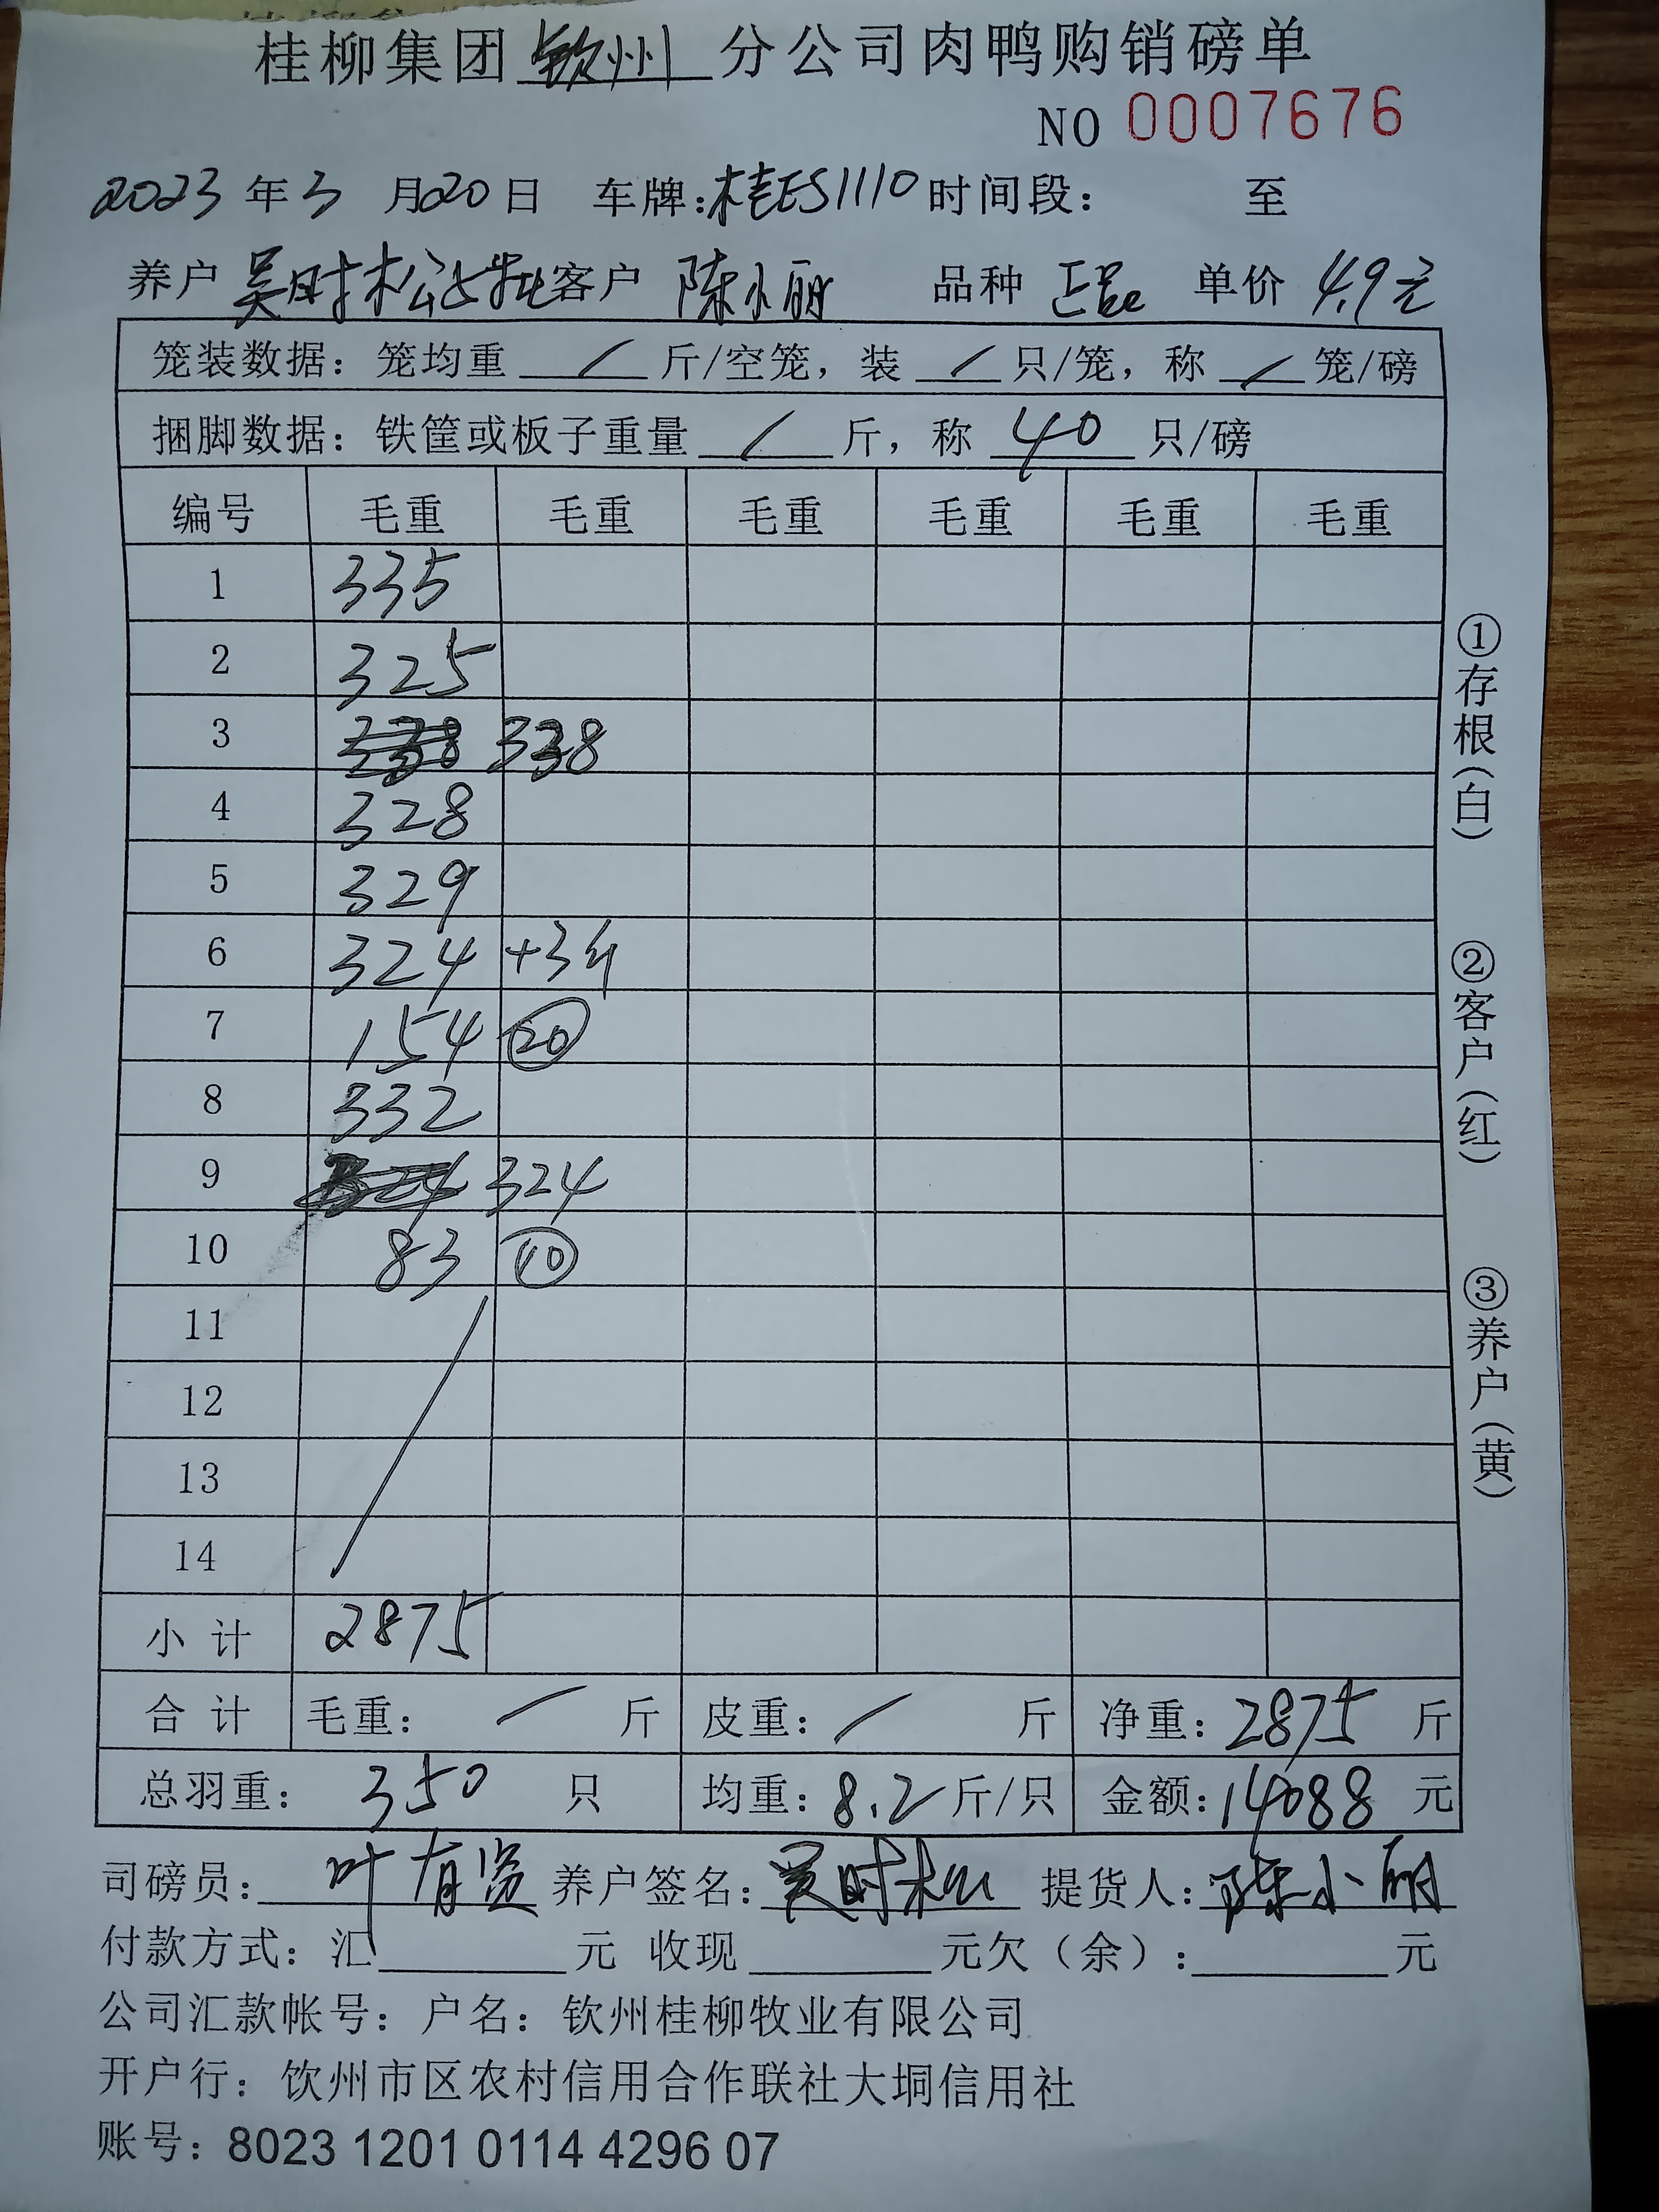 桂柳集团钦州分公司肉鸭购销磅单
NO 0007676
2023年3月20日 车牌:桂ES1110时间段: 至
养户 吴时松 客户 陈小丽 品种 正品 单价 4.9元
笼装数据: 笼均重 / 斤/空笼, 装 / 只/笼, 称 / 笼/磅
捆脚数据: 铁筐或板子重量 / 斤, 称 40 只/磅
编号 毛重 毛重 毛重 毛重 毛重 毛重
1 335
2 325
3 338 338
4 328
5 329
6 324 +3斤
7 154 20
8 332
9 324 324
10 83 10
11
12
13
14
小计 2875
合计 毛重: / 斤 皮重: / 斤 净重: 2875 斤
总羽重: 350 只 均重: 8.2 斤/只 金额: 14088 元
司磅员: 叶有 养户签名: 吴时松 提货人: 陈小丽
付款方式: 汇 元 收现 元欠(余): 元
公司汇款帐号: 户名: 钦州桂柳牧业有限公司
开户行: 饮州市区农村信用合作联社大垌信用社
账号: 8023 1201 0114 4296 07
①存根(白)
②客户(红)
③养户(黄)